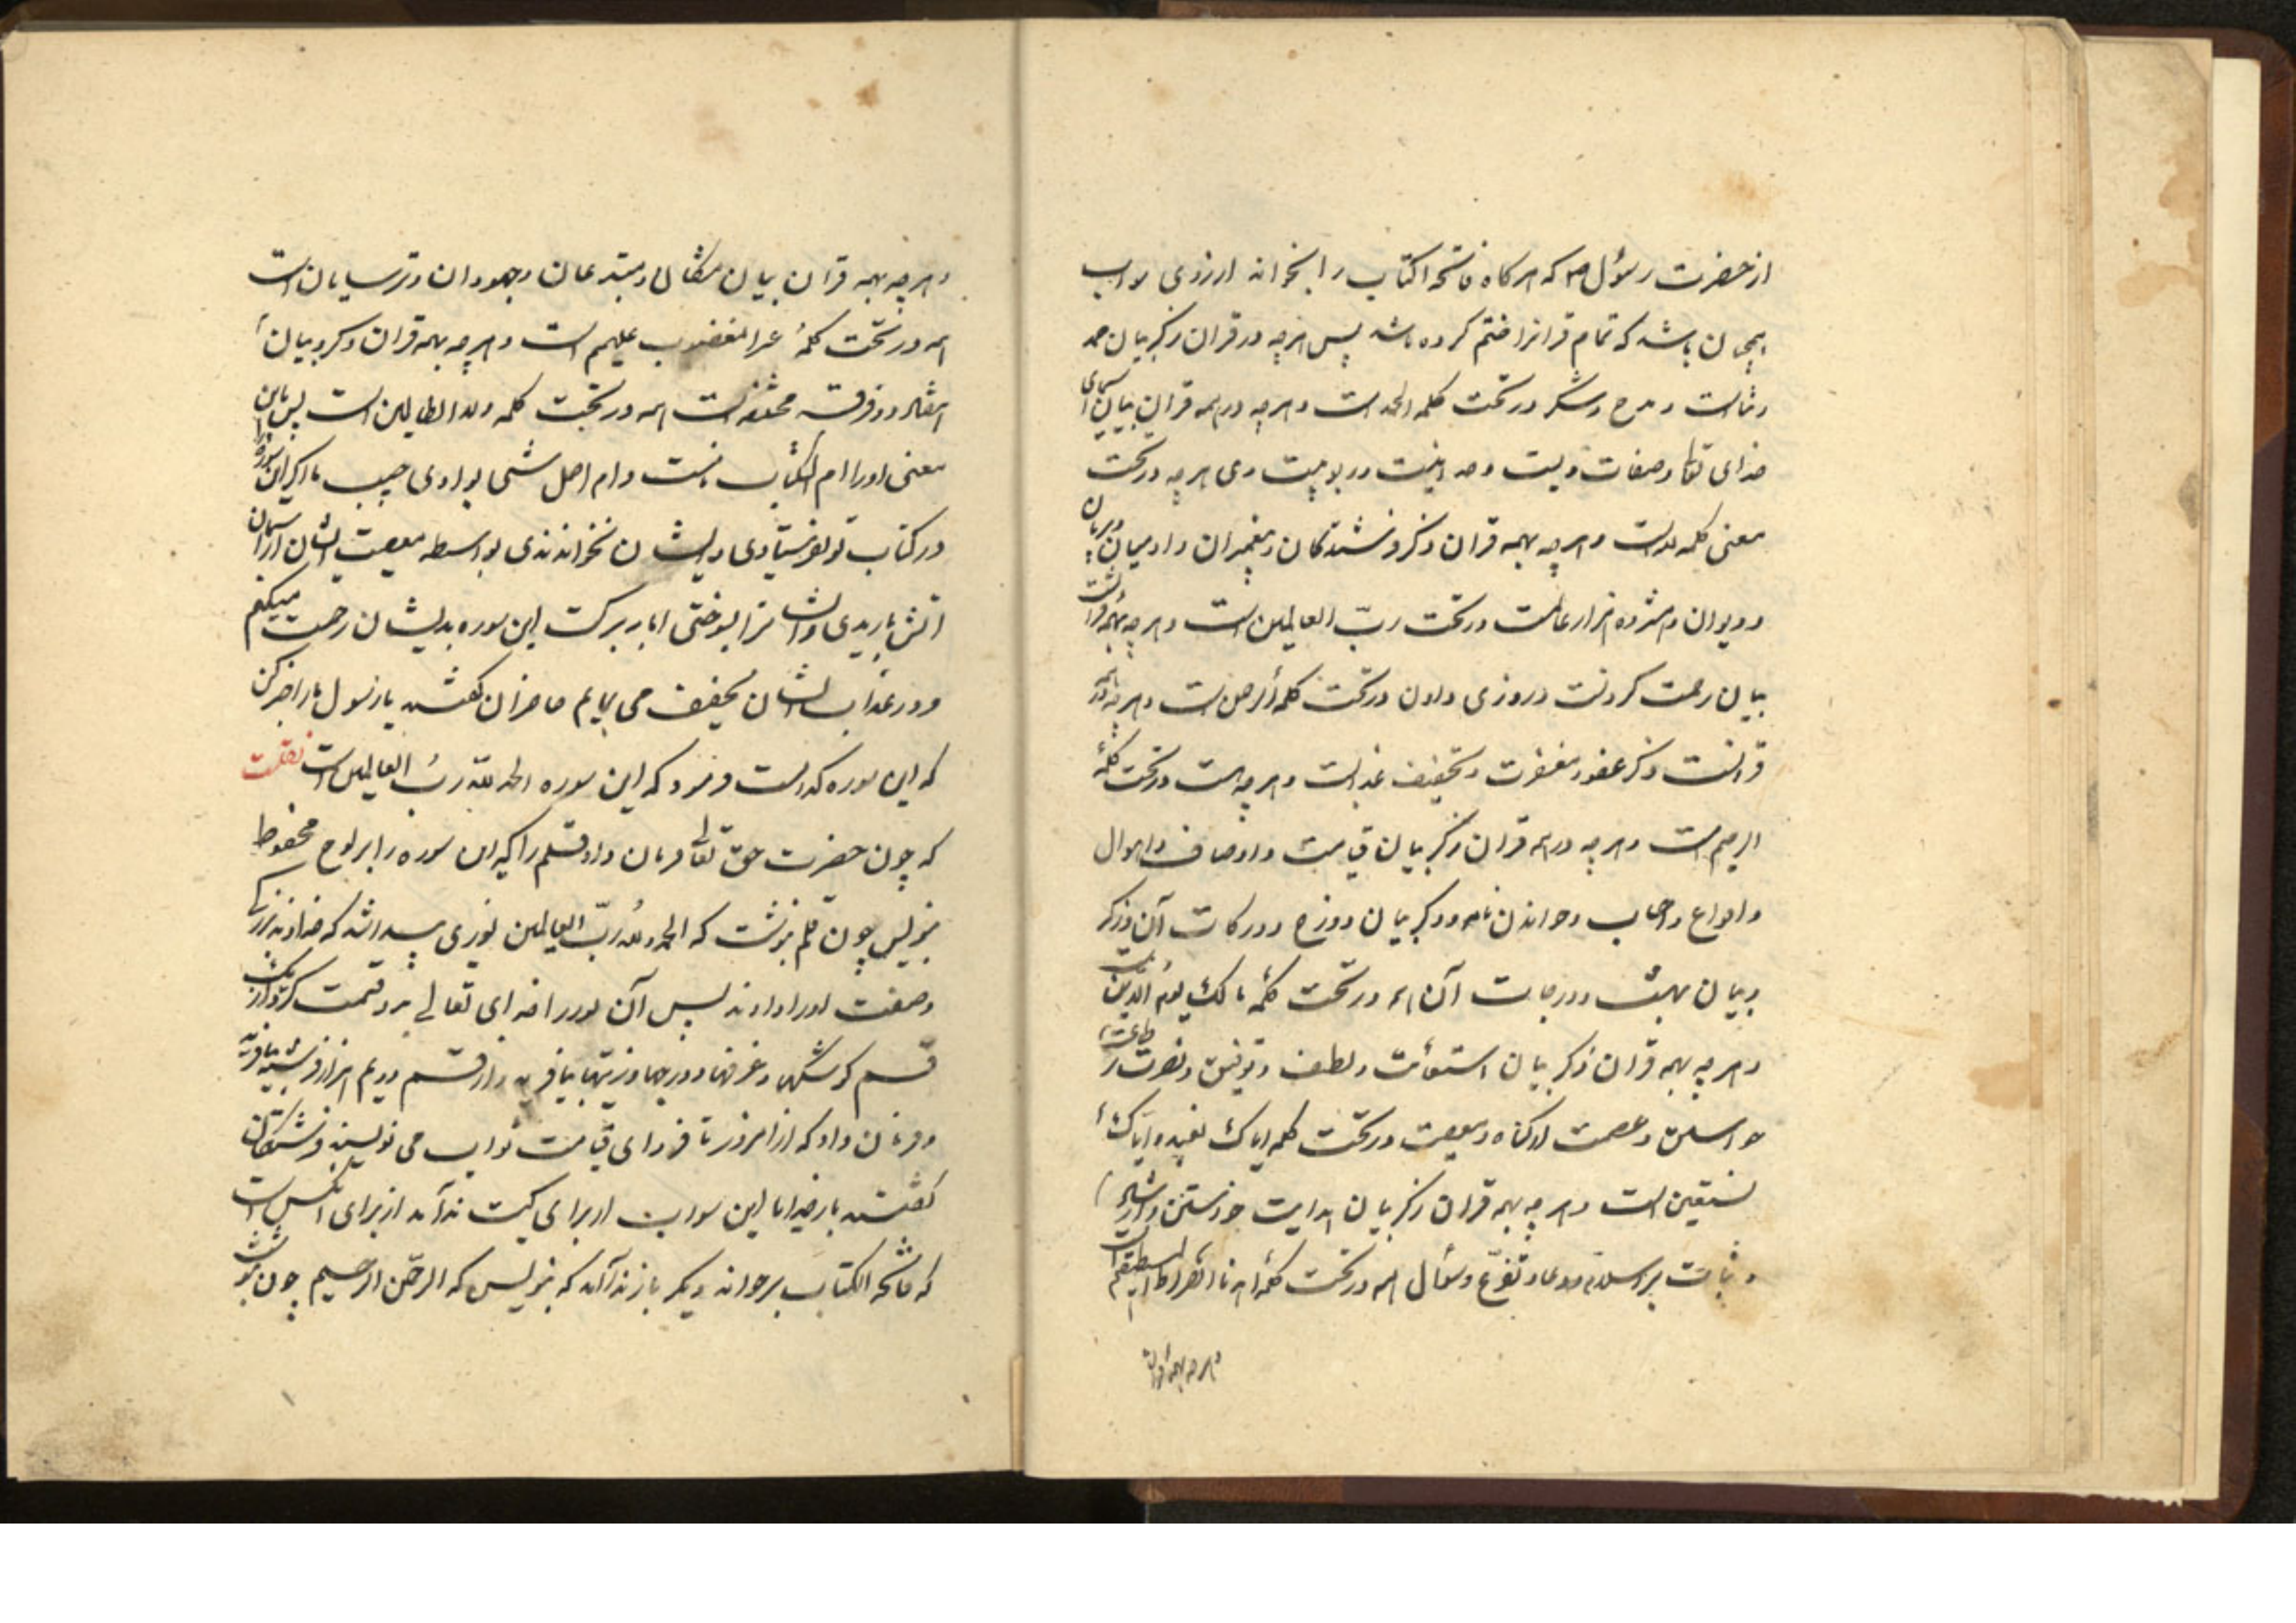 از حضرت رسول ص که هر کاه فاتحه الکتاب را بخواند ارزوی
همچنان باشد که تمام قرانرا ختم کرده باشد پس هرچه در قران ذکر بیان حمد
و ثناست و مدح و شکر در تحت کلمه الحمد است و هرچه در همه قران بیان اسمای
خدای تعالی و صفات ویست و حدانیت و ربوبیت وی هرچه در تحت
معنی کلمه لله است و هرچه بهمه قران ذکر فرشتکان و پیغمبران و ادمیان و پریان
و دیوان و هژده هزار عالمست در تحت ربّ العالمین است و هرچه بهمه قرانست
بیان رحمت کردنست و روزی دادن در تحت کلمه الرحمن است و هرچه در همه
قرانست ذکر عفو و مغفرت و تخفیف عذابست و هرچه هست در تحت کلمهٔ
الرحیم است و هرچه در همه قران ذکر بیان قیامت و اوصاف و اهوال
و انواع و حساب و خواندن نامه و ذکر بیان دوزخ و درکات آن و ذکر
و بیان بهشت و درجات آن همه در تحت کلمهٔ مالک یوم الدین است
و هرچه بهمه قران ذکر بیان استعانت و لطف و توفیق و نصرت بر طاعت
و عصمت از کناه و معصیت در تحت کلمه ایاک نعبد و ایاک
نستعین است و هرچه بهمه قران ذکر بیان هدایت خواستن و ارشاد
و ثبات بر اسلام و دعا و تضرّع و سؤال همه در تحت کلمهٔ اهدنا الصراط المستقیم است
و هرچه بهمه قران
و هرچه بهمه قران بیان و مبتدعان و جهودان و ترسایان است
همه در تحت کلمهٔ غیر المغضوب علیهم است و هرچه بهمه قران ذکر و بیان
و دو فرقه مختلفه است همه در تحت کلمه ولا الضالین است پس باین
معنی او را ام الکتاب است و ام اصل شی بود ای حبیب ما اگر این سوره را
در کتاب تو نفرستادی و ایشان نخواندندی بواسطه معصیت ایشان از اسمان
اتش باریدی و ایشانرا بسوختی اما ببرکت این سوره بدیشان رحمت میکنم
و در عذاب ایشان تخفیف می نمایم حاضران کفتند یا رسول ما را خبر کن
که این سوره کدامست فرمود که این سوره الحمد للّه ربّ العالمین است نقلست
که چون حضرت حق تعالی فرمان داد قلم را که این سوره را بر لوح محفوظ
بنویس چون قلم بنوشت که الحمد لله ربّ العالمین نوری پیدا شد که خداوند بزرکی
و صفت او را داوند پس آن نور را خدای تعالی بدو قسمت کرد و از یک
قسم کوشکها و غرفها و درجها و زینتها بیافرید و از قسم دویم هزار فرشته بیافرید
و فرمان داد که از امروز تا فردای قیامت ثواب می نویسند فرشتکان
کفتند بار خدایا این از برای کیست ندا آمد از برای آنکس است
که فاتحه الکتاب بر خواند دیکر باز ندا آمد که بنویس که الرحمن الرحیم چون بنوشت